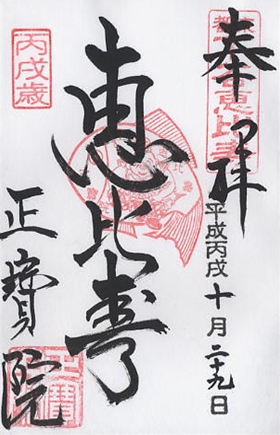 奉拝
平成丙戌十月二十九日
恵比寿
丙戌歳
正寳院